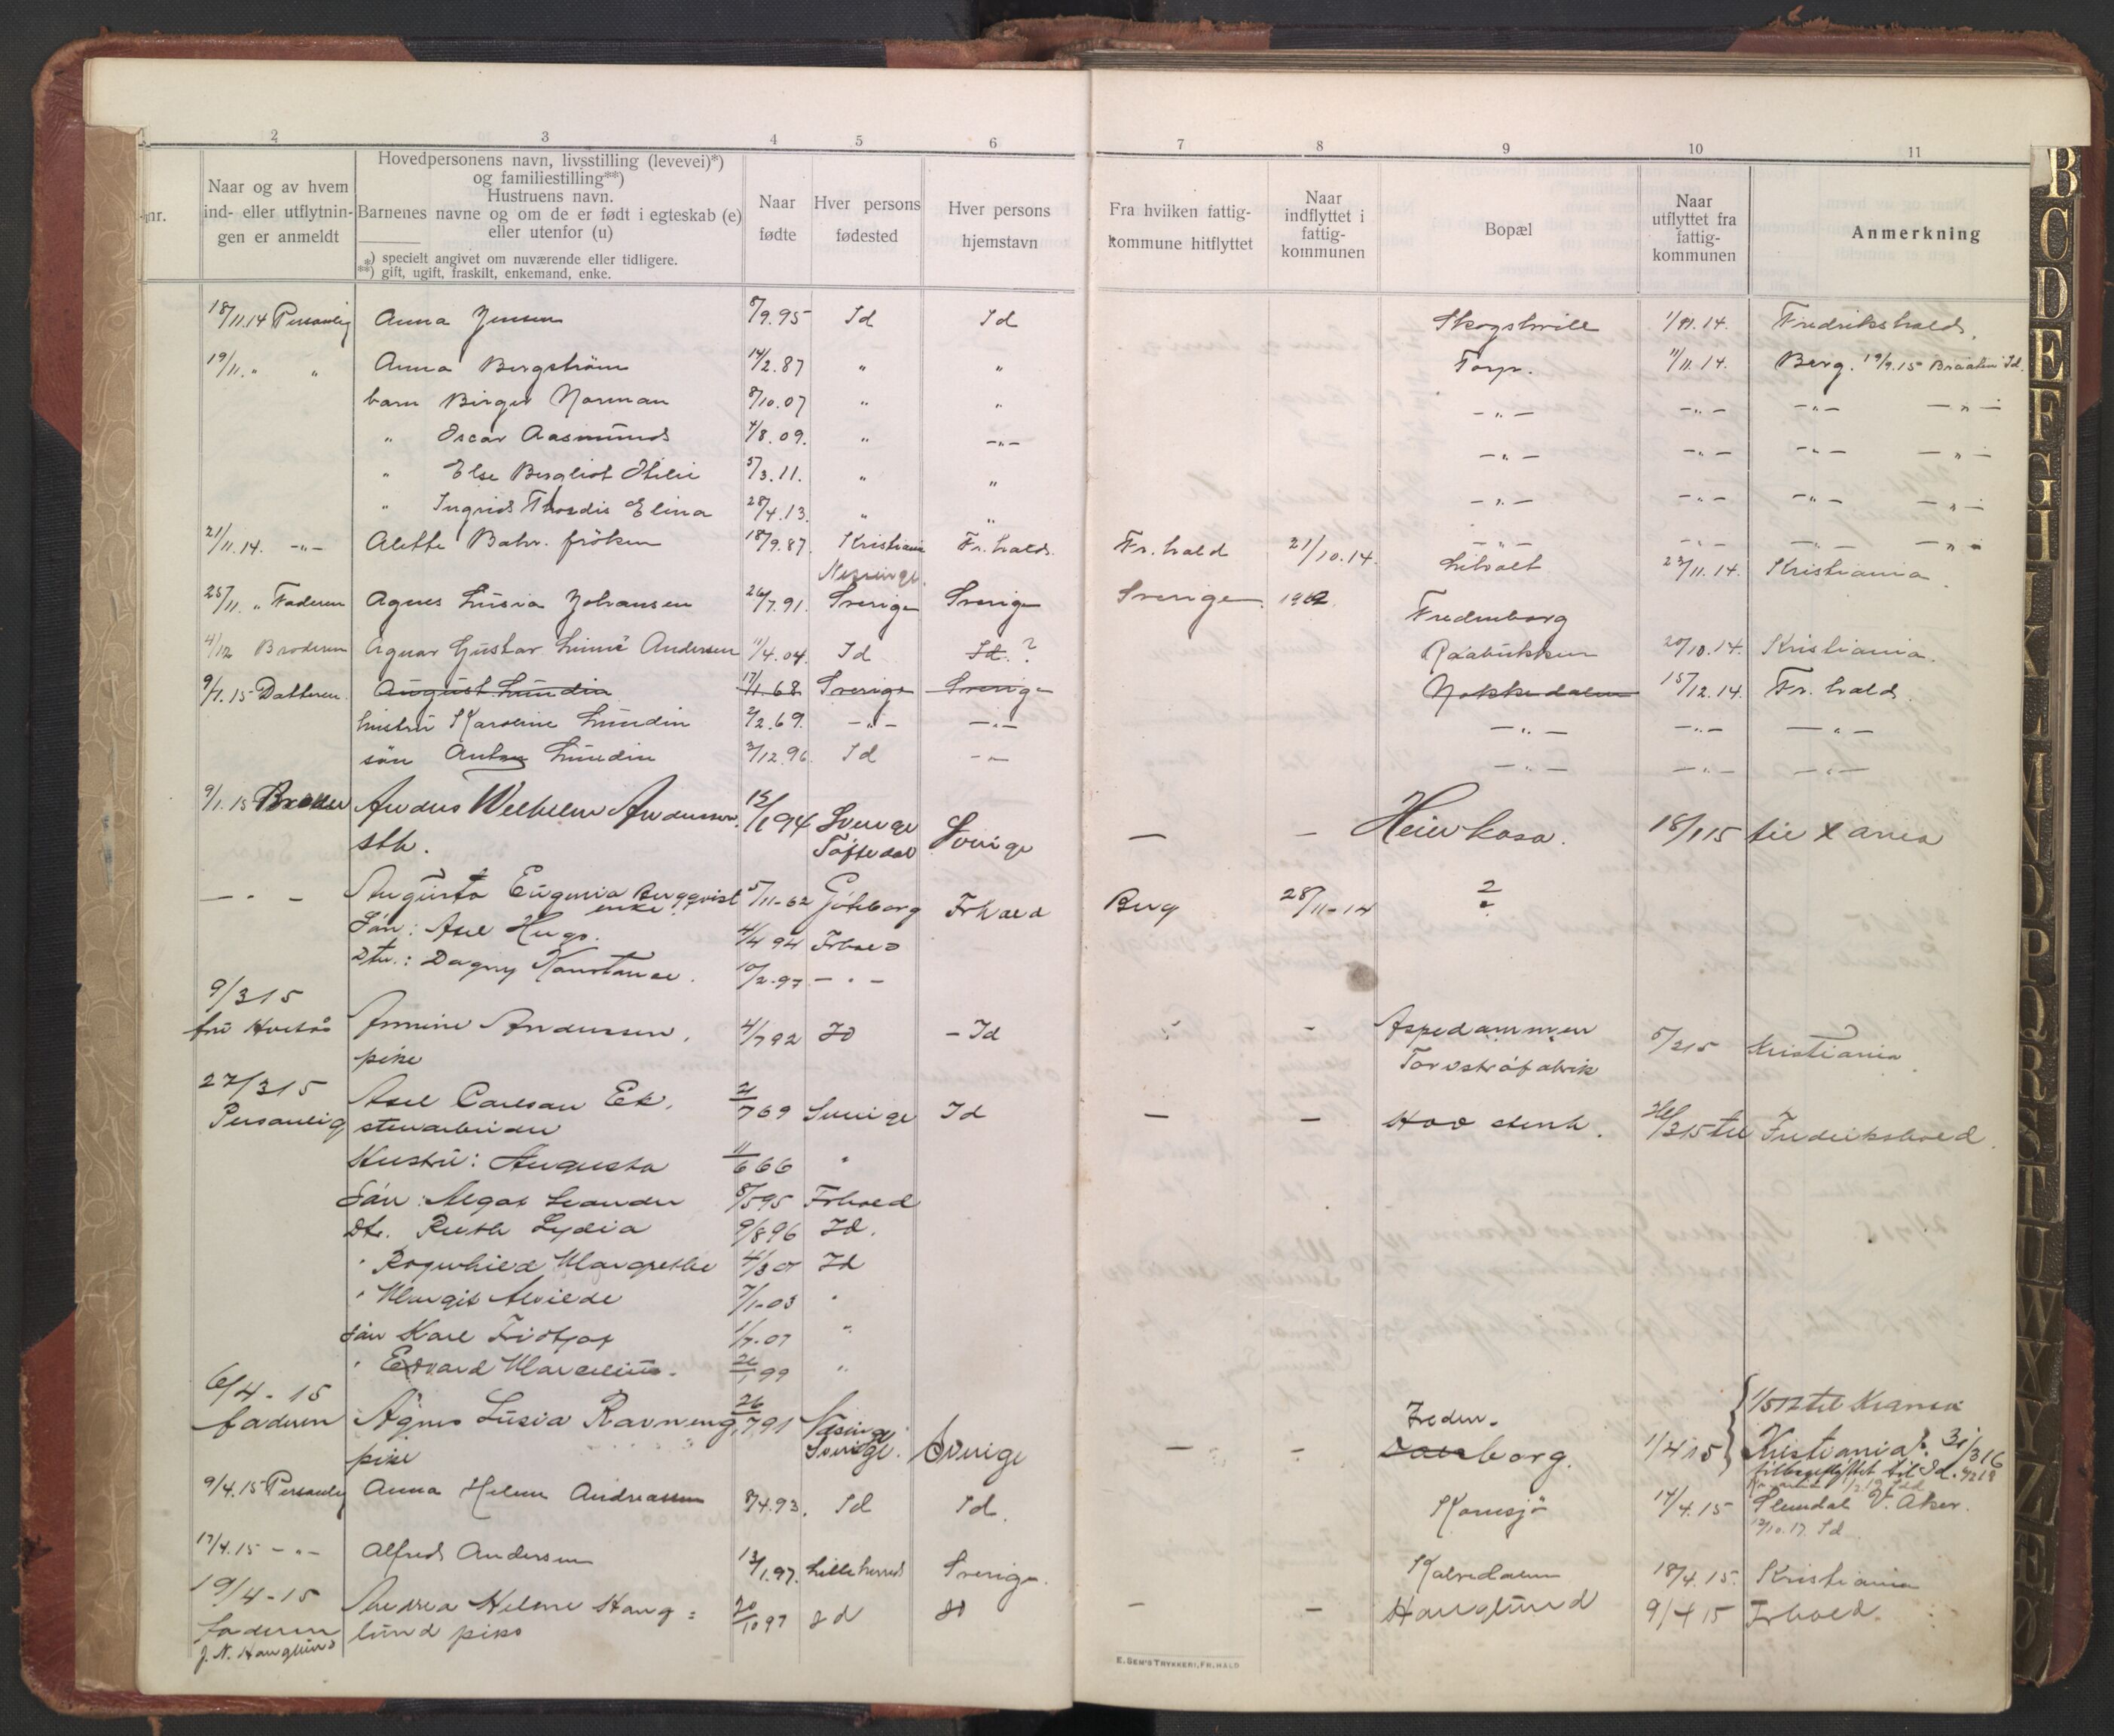 2 3 4 5 6 7 8 9 10 11
nr.
Naar og av hvem
ind- eller utflytnin-
gen er anmeldt
Hovedpersonens navn, livsstilling (levevei)*)
og familiestilling**)
Hustruens navn.
Barnenes navne og om de er født i egteskab (e)
eller utenfor (u)
*) specielt angivet om nuværende eller tidligere.
**) gift, ugift, fraskilt, enkemand, enke.
Naar
fødte
Hver persons
fødested
Hver persons
hjemstavn
Fra hvilken fattig-
kommune hitflyttet
Naar
indflyttet i
fattig-
kommunen
Bopæl
Naar
utflyttet fra
fattig-
kommunen
Anmerkning
18/11.14 Personlig Anna Jensen 8/9.95 Id Id 1/11.14. Fredrikshald.
19/11. " " Anna Bergstrøm 14/2.87 " " Torp. 11/11.14. Berg. 19/9.15 Braaten Id.
barn Birger Norman 8/10.07 " " -"- -"- -"- -"-
" Oscar Aasmund 4/8.09. " -"- -"- -"- -"- -"-
" Else Bergliot Otilie 5/3.11. " " -"- -"- -"- -"-
" Ingrid Thordis Elina 28/4.13. " " -"- -"- -"- -"-
21/11.14. -"- Alette Bahr. frøken 18/9.87. Kristiania Fr.hald. Fr.hald 21/10.14. 23/11.14. Kristiania.
25/11. " Faderen Agnes Lusia Johansen 26/7.91. Sverige Sverige Sverige Fredenborg
4/12 Broderen Agnar Gustav Andersen 11/4.04. Id Id. ? Raabukken 20/10.14. Kristiania.
9/1.15 Datteren. August Lundin 17/1.68. Sverige Sverige Nokkedalen 15/12.14. Fr.hald.
hustru Karoline Lundin 2/2.69. -"- -"- -"- -"- -"-
søn Anton Lundin 3/12.96. Id -"- -"- -"- -"-
9/1.15 Broder Anders Wilhelm Andersson 15/1 94 Sverige Sverige - - 18/1 15 til X ania
sth. Töftedal
- " - Augusta Eugenia Bergqvist 5/11-62 Göteborg Frhald Berg 28/11-14 ?
enke
Søn: Axel Hugo. 4/4 94 Frhald
Dtr.: Dagny Konstanse. 10/2-97 - " -
9/3 15
fru Andersen, 4/7 92 Id - Id - Aspedammen 5/2 15 Kristiania
pike Torvstrøfabrik
27/3 15
Personlig Axel Carlson Ek, 21/7 69 Sverige Id - - 26/3 15 til Fredrikshald.
stenarbeider
Hustru: Augusta 11/6 66 "
Søn: Leander 8/5 95 Frhald
Dtr. Ruth Lydia 9/8 96 Id.
" Ragnhild Margrethe Id
" Margit Alvilde 7/1-03 "
Søn Karl Fridtjof 1/7-07 "
" Edvard Marcelius. "
6/4-15
faderen Agnes Lusia Ravneng, 26/7 91 Näsinge Sverige - - Freden- 1/4 15 Kristiania
pike Sverige. borg.
9/4.15 Personlig Anna Helene Andreassen 8/4.93. Id Id. Kornsjø 14/4.15 Slemdal V. Aker.
13/10.17. Id
17/4.15 -"- Alfred Andersen 13/1.97. Lilleherred Sverige. Kalvedalen 18/4.15. Kristiania
19/4-15
faderen Andrea Helene Haug= 20/10 97 Id Id - - Hauglund 9/4 15 Frhald.
J. N. Hauglund lund pike
E. SEM'S TRYKKERI, FR.HALD
B
C
D
E
F
G
H
I
J
K
L
M
N
O
P
Q
R
S
T
U
W
X
Y
Z
Æ
Ø